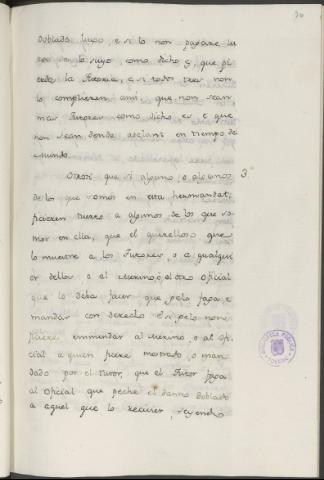 30
doblado luego, e si lo non pagare lu
ego de lo suyo, como dicho es, que pi
erda la Tutoria, e si todos tres non
lo complieren ami que non sean
mas Tutores como dicho es, e que
non sean dende adelant en tiempo del
mundo.
Otrosi que si alguno, o algunos 3.
de los que somos en esta hermandat,
ficieren tuerto a algunos de los que so
mos en ella, que el querelloso que
lo muestre a los Tutores, o a qualqui
er dellos o al Merino, o al otro oficial
que lo deba facer que gelo faga e
mandar con derecho el, gelo non
ficiere emmendar al Merino o al ofi
cial a quien fuere mostrado, o man
dado por el Tutor, que el Tutor faga
al oficial que peche el danno doblado
a aquel que lo recivier, seyendo
BIBLIOTECA PUBLICA
TOLEDO